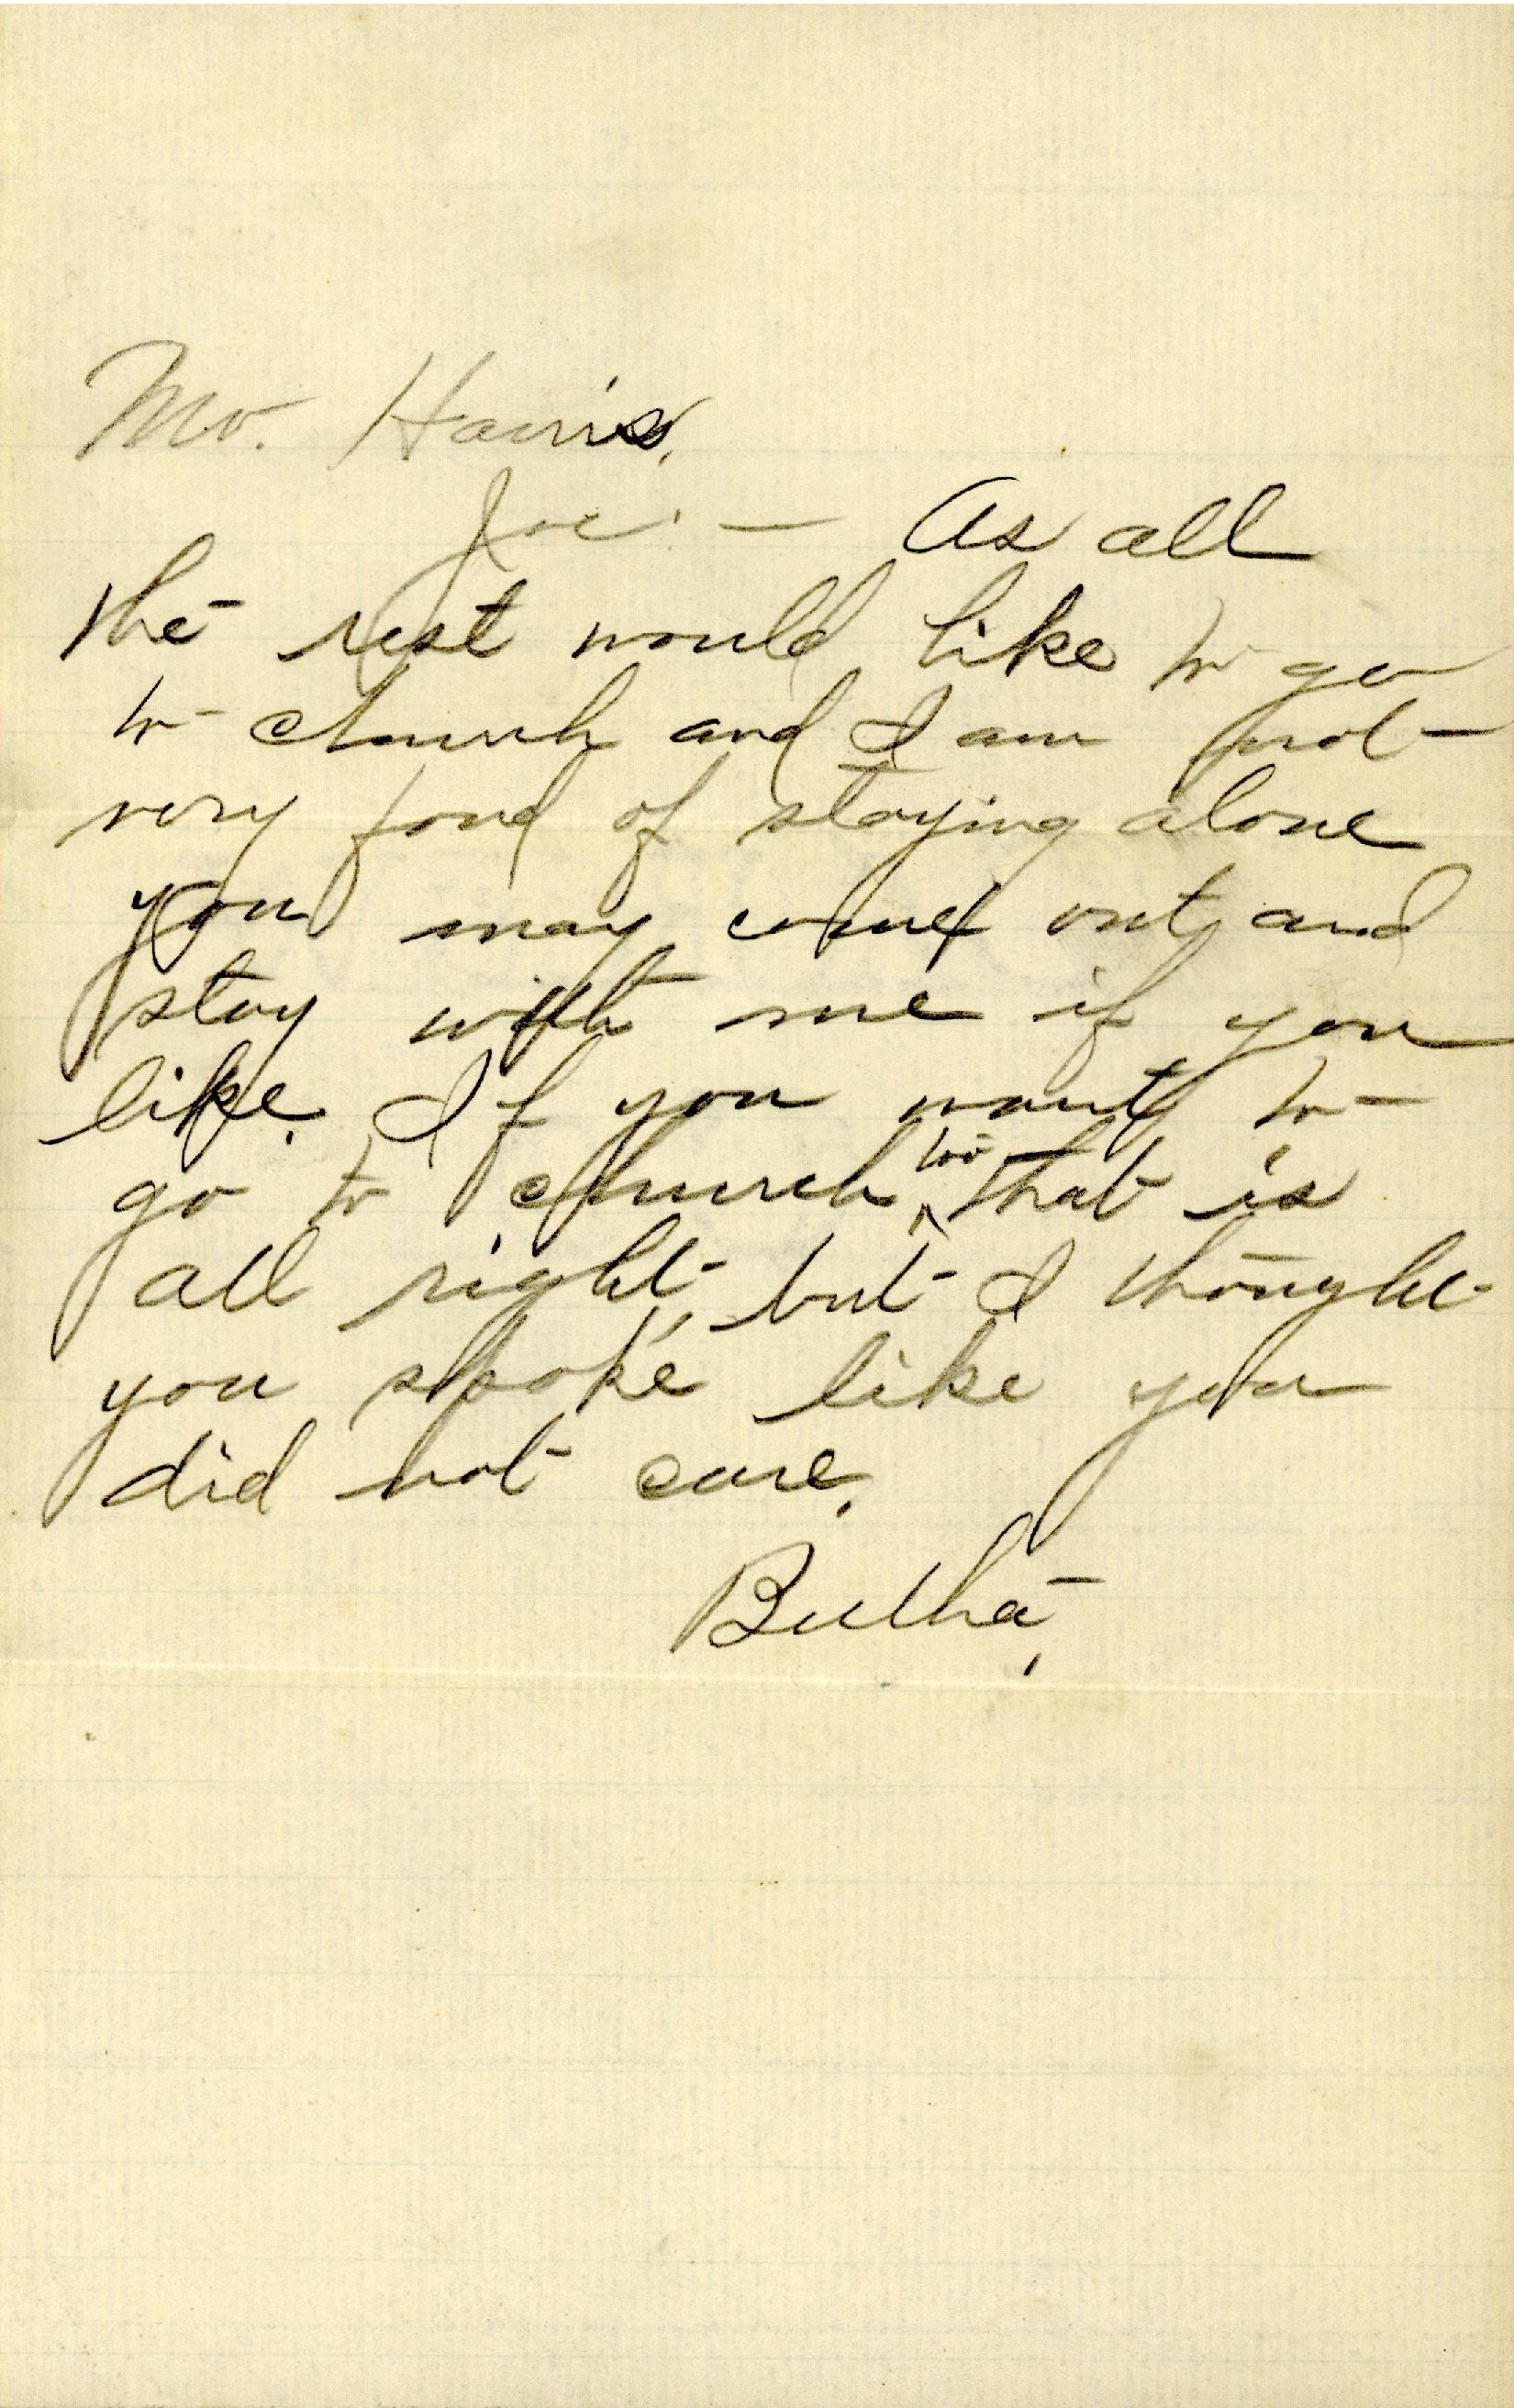 Mr. Harris,
Joe: — As all
the rest would like to go
to church and I am not
very fond of staying alone
you may come out and
stay with me if you
like. If you want to
go to church too that is
all right, but I thought
you spoke like you
did not care.
Bertha,